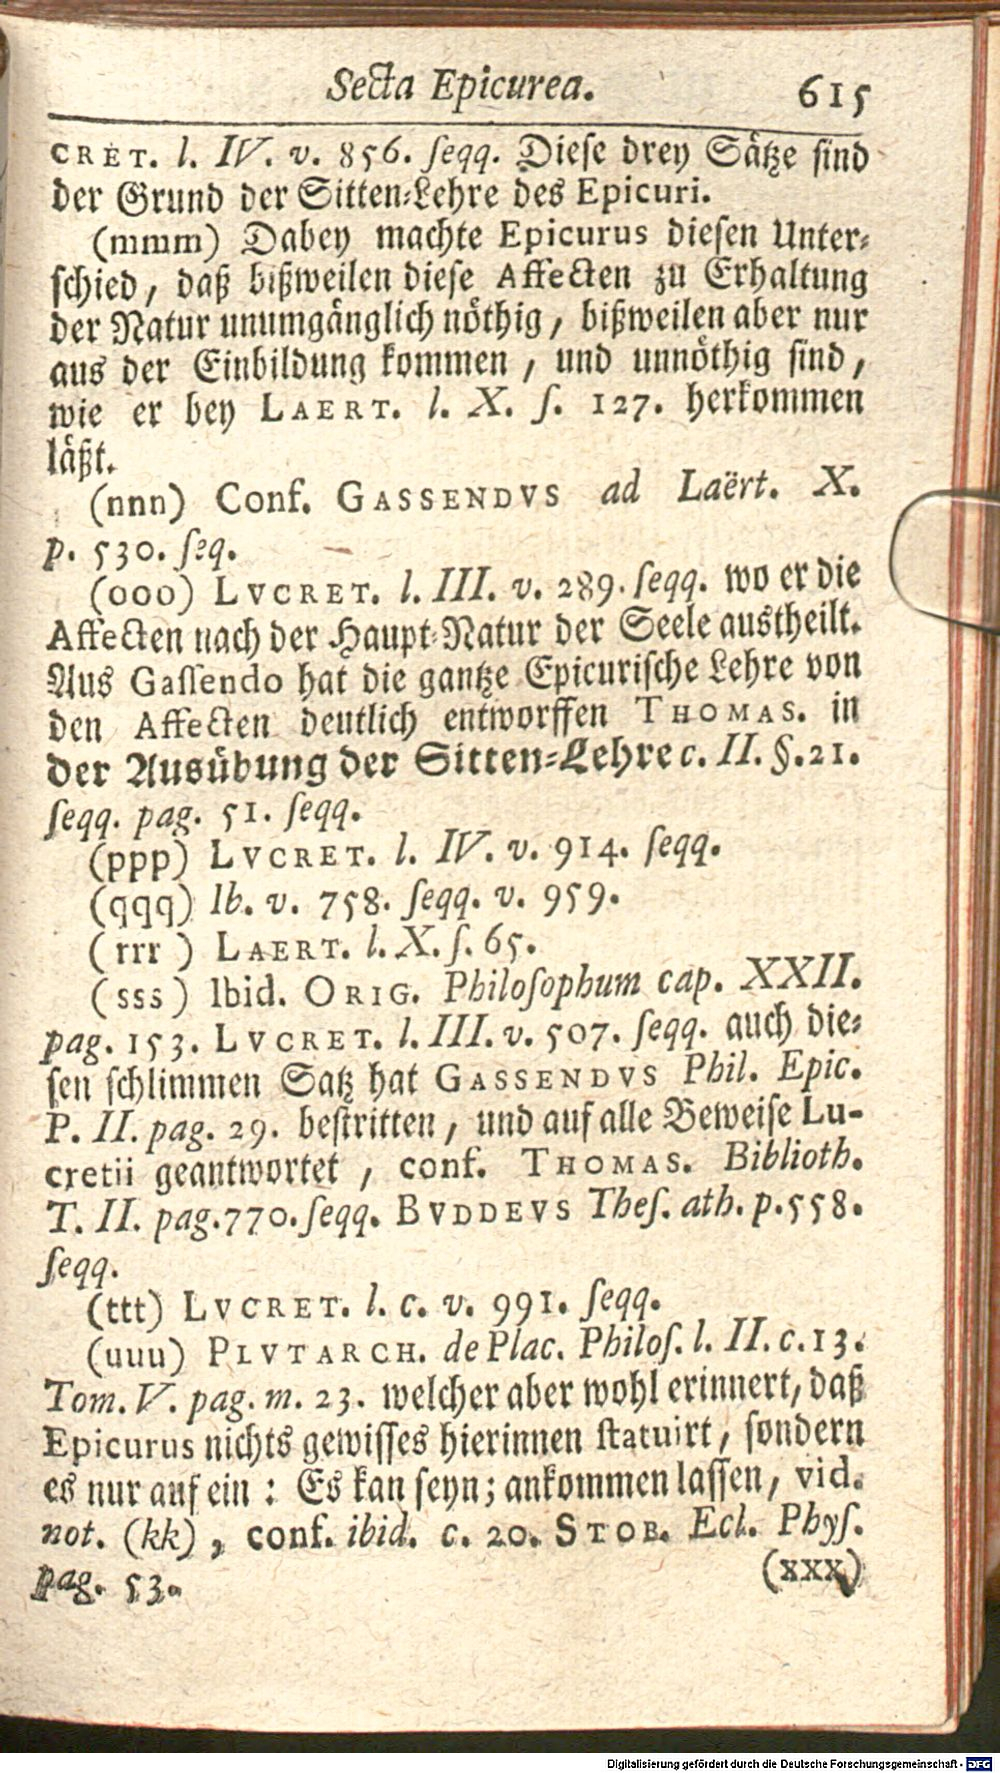 Secta Epicurea. 615
CRET. l. IV. v. 856. ſeqq. Dieſe drey Sätze ſind
der Grund der Sitten-Lehre des Epicuri.
(mmm) Dabey machte Epicurus dieſen Unter-
ſchied, daß bißweilen dieſe Affecten zu Erhaltung
der Natur unumgänglich nöthig, bißweilen aber nur
aus der Einbildung kommen, und unnöthig ſind,
wie er bey LAERT. l. X. ſ. 127. herkommen
läßt.
(nnn) Conf. GASSENDVS ad Laërt. X.
p. 530. ſeq.
(ooo) LVCRET. l. III. v. 289. ſeqq. wo er die
Affecten nach der Haupt-Natur der Seele austheilt.
Aus Gaſſendo hat die gantze Epicuriſche Lehre von
den Affecten deutlich entworffen THOMAS. in
der Ausübung der Sitten-Lehre c. II. §. 21.
ſeqq. pag. 51. ſeqq.
(ppp) LVCRET. l. IV. v. 914. ſeqq.
(qqq) Ib. v. 758. ſeqq. v. 959.
(rrr) LAERT. l. X. ſ. 65.
(sss) Ibid. ORIG. Philoſophum cap. XXII.
pag. 153. LVCRET. l. III. v. 507. ſeqq. auch die-
ſen ſchlimmen Satz hat GASSENDVS Phil. Epic.
P. II. pag. 29. beſtritten, und auf alle Beweiſe Lu-
cretii geantwortet, conf. THOMAS. Biblioth.
T. II. pag. 770. ſeqq. BVDDEVS Theſ. ath. p. 558.
ſeqq.
(ttt) LVCRET. l. c. v. 991. ſeqq.
(uuu) PLVTARCH. de Plac. Philoſ. l. II. c. 13.
Tom. V. pag. m. 23. welcher aber wohl erinnert, daß
Epicurus nichts gewiſſes hierinnen ſtatuirt, ſondern
es nur auf ein: Es kan ſeyn; ankommen laſſen, vid.
not. (kk), conf. ibid. c. 20. STOB. Ecl. Phyſ.
pag. 53. (xxx)
Digitalisierung gefördert durch die Deutsche Forschungsgemeinschaft - DFG